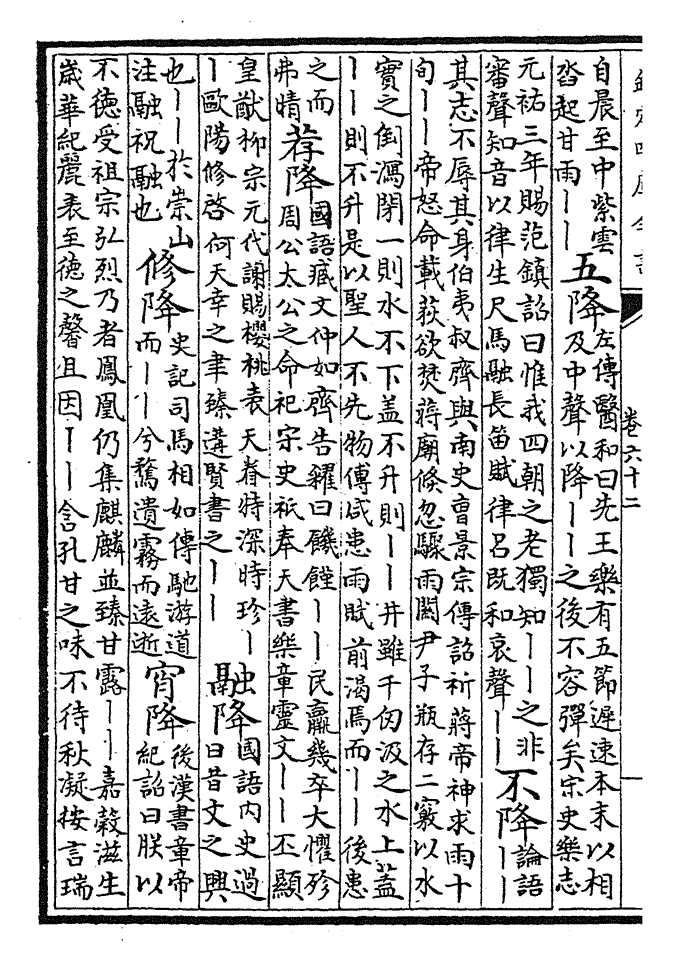 卷六十二
自晨至中紫雲
沓起甘雨〡〡
五降
左傳醫和曰先王樂有五節遲速本末以相
及中聲以降〡〡之後不容彈矣宋史樂志
元祐三年賜范鎮詔曰惟我四朝之老獨知〡〡之非
審聲知音以律生尺馬融長笛賦律呂既和哀聲〡〡
不降
論語
〡〡
其志不辱其身伯夷叔齊與南史曹景宗傳詔祈蔣帝神求雨十
旬〡〡帝怒命載荻欲焚蔣廟倏忽驟雨關尹子瓶存二竅以水
實之倒瀉閉一則水不下蓋不升則〡〡井雖千仞汲之水上蓋
〡〡則不升是以聖人不先物傅咸患雨賦前渴焉而〡〡後患
之而
弗晴
荐降
國語臧文仲如齊告糴曰饑饉〡〡民羸幾卒大懼殄
周公太公之命祀宋史祗奉天書樂章靈文〡〡丕顯
皇猷柳宗元代謝賜櫻桃表天眷特深時珍〡
〡歐陽修啓何天幸之聿臻遘賢書之〡〡
融降
國語內史過
曰昔文之興
也〡〡於崇山
注融祝融也
修降
史記司馬相如傳馳游道
而〡〡兮騖遺霧而遠逝
宵降
後漢書章帝
紀詔曰朕以
不德受祖宗弘烈乃者鳳凰仍集麒麟並臻甘露〡〡嘉穀滋生
歲華紀麗表至德之馨且因〡〡含孔甘之味不待秋凝按言瑞